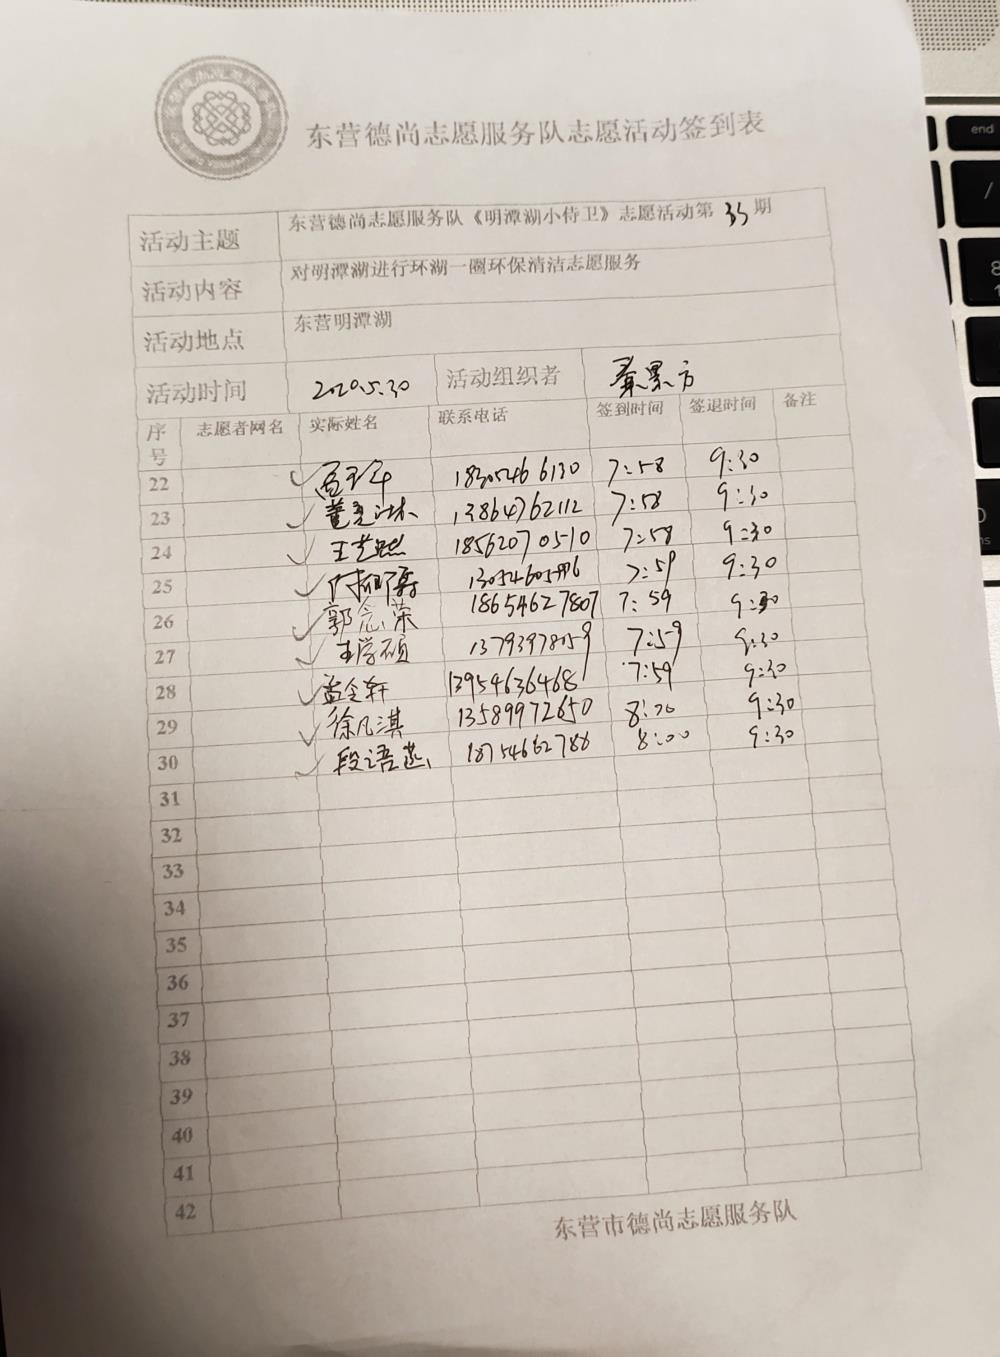 东营德尚志愿服务队志愿活动签到表
活动主题 东营德尚志愿服务队《明潭湖小侍卫》志愿活动第35期
活动内容 对明潭湖进行环湖一圈环保清洁志愿服务
活动地点 东营明潭湖
活动时间 2020.5.30 活动组织者
序号 志愿者网名 实际姓名 联系电话 签到时间 签退时间 备注
22 18305466130 7:58 9:30
23 13864762112 7:58 9:30
24 18562070510 7:58 9:30
25 7:59 9:30
26 郭念荣 18654627807 7:59 9:30
27 王学硕 13793978059 7:59 9:30
28 孟令轩 13954636468 7:59 9:30
29 徐凡淇 13589972650 8:00 9:30
30 段语菡 18754662788 8:00 9:30
31
32
33
34
35
36
37
38
39
40
41
42
东营市德尚志愿服务队